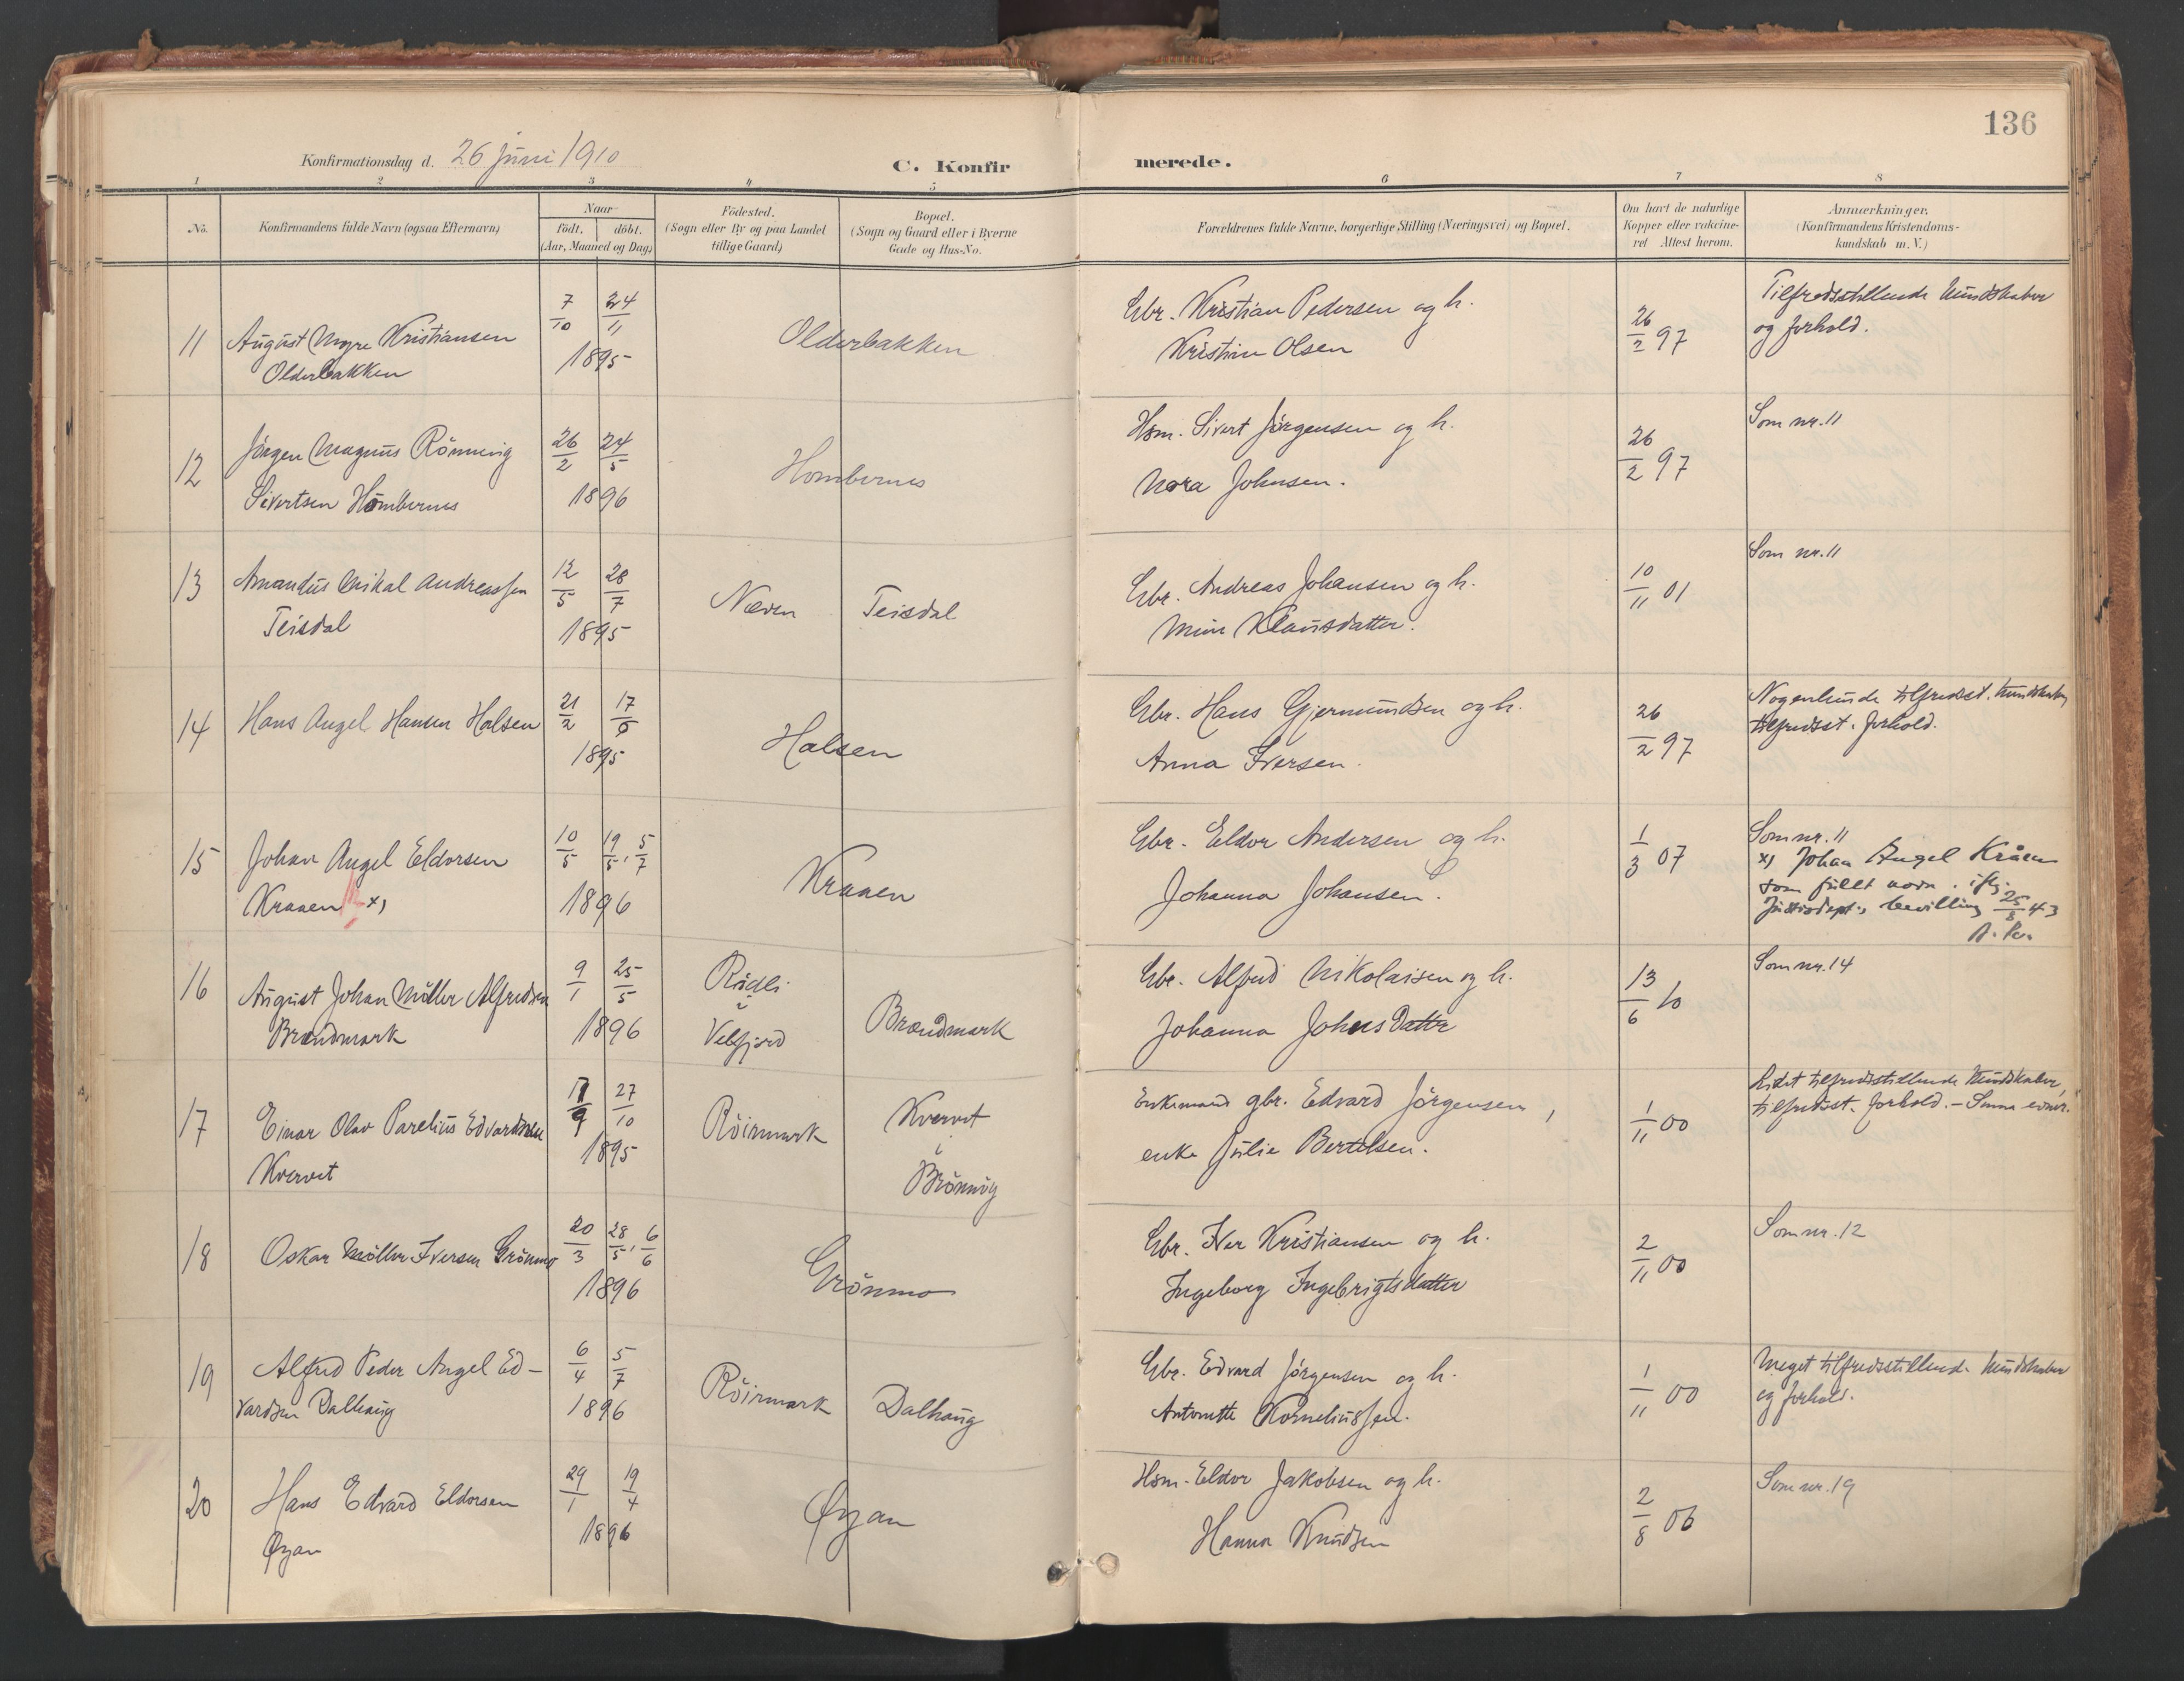 136
Konfirmationsdag d. 26 juni 1910
C. Konfirmerede.
1 2 3 4 5 6 7 8
No.
Konfirmandens fulde Navn (ogsaa Efternavn)
Naar
födt. döbt.
(Aar, Maaned og Dag)
Födested.
(Sogn eller By og paa Landet
tillige Gaard)
Bopæl.
(Sogn og Gaard eller i Byerne
Gade og Hus-No.
Forældrenes fulde Navne, borgerlige Stilling (Næringsvei) og Bopæl.
Om havt de naturlige
Kopper eller vakcine-
ret Attest herom.
Anmærkninger.
(Konfirmandens Kristendoms-
kundskab m. V.)
11 August Myre Kristiansen
Olderbakken
7/10 24/11
1895
Olderbakken
Gbr. Kristian Pedersen og h.
Kristine Olsen
26/2 97
Tilfredsstillende kundskaber
og forhold.
12 Jörgen Magnus Rönning
Sivertsen Hombernes
26/2 24/5
1896
Hombernes
Hsm. Sivert Jörgensen og h.
Nora Johnsen.
26/2 97
Som nr. 11
13 Amandus Mikal Andreassen
Teisdal
12/5 28/7
1895
Næven
Teisdal
Gbr. Andreas Johansen og h.
Mine Klausdatter.
10/11 01
Som nr. 11
14 Hans Angel Hansen Halsen
21/2 17/6
1895
Halsen
Gbr. Hans Gjermundsen og h.
Anna Iversen.
26/2 97
Nogenlunde tilfredsst. kundskaber
tilfredsst. forhold.
15 Johan Angel Eldorsen
Kraaen x)
10/5 19/5, 5/7
1896
Kraaen
Gbr. Eldor Andersen og h.
Johanna Johansen.
1/3 07
Som nr. 11
x) Johan Angel Kråen
som fullt navn. iflg.
Justisdept.s bevilling 25/3 43
16 August Johan Möller Alfredsen
Brændmark
9/1 25/5
1896
Rödli
i
Velfjord
Brændmark
Gbr. Alfred Nikolaisen og h.
Johanna Johnsdatter
13/6 10
Som nr. 14
17 Einar Olav Parelius Edvardsen
Kvervet
17/9 27/10
1895
Röirmark
Kvervet
i
Brönnöy
Enkemand gbr. Edvard Jörgensen,
enke Julie Bertelsen.
1/11 00
Lidet tilfredsstillende kundskaber,
tilfredsst. forhold. - Smaa evner.
18 Oskar Möller Iversen Grönmo
20/3 28/5, 6/6
1896
Grönmo
Gbr. Iver Kristiansen og h.
Ingeborg Ingebrigtsdatter
2/11 00
Som nr. 12
19 Alfred Peder Angel Ed-
vardsen Dalhaug
6/4 5/7
1896
Röirmark
Dalhaug
Gbr. Edvard Jörgensen og h.
Antonette Korneliussen.
1/11 00
Meget tilfredsstillende kundskaber
og forhold.
20 Hans Edvard Eldorsen
Øyan
29/1 19/4
1896
Øyan
Hsm. Eldor Jakobsen og h.
Hanna Knudsen
2/8 06
Som nr. 19